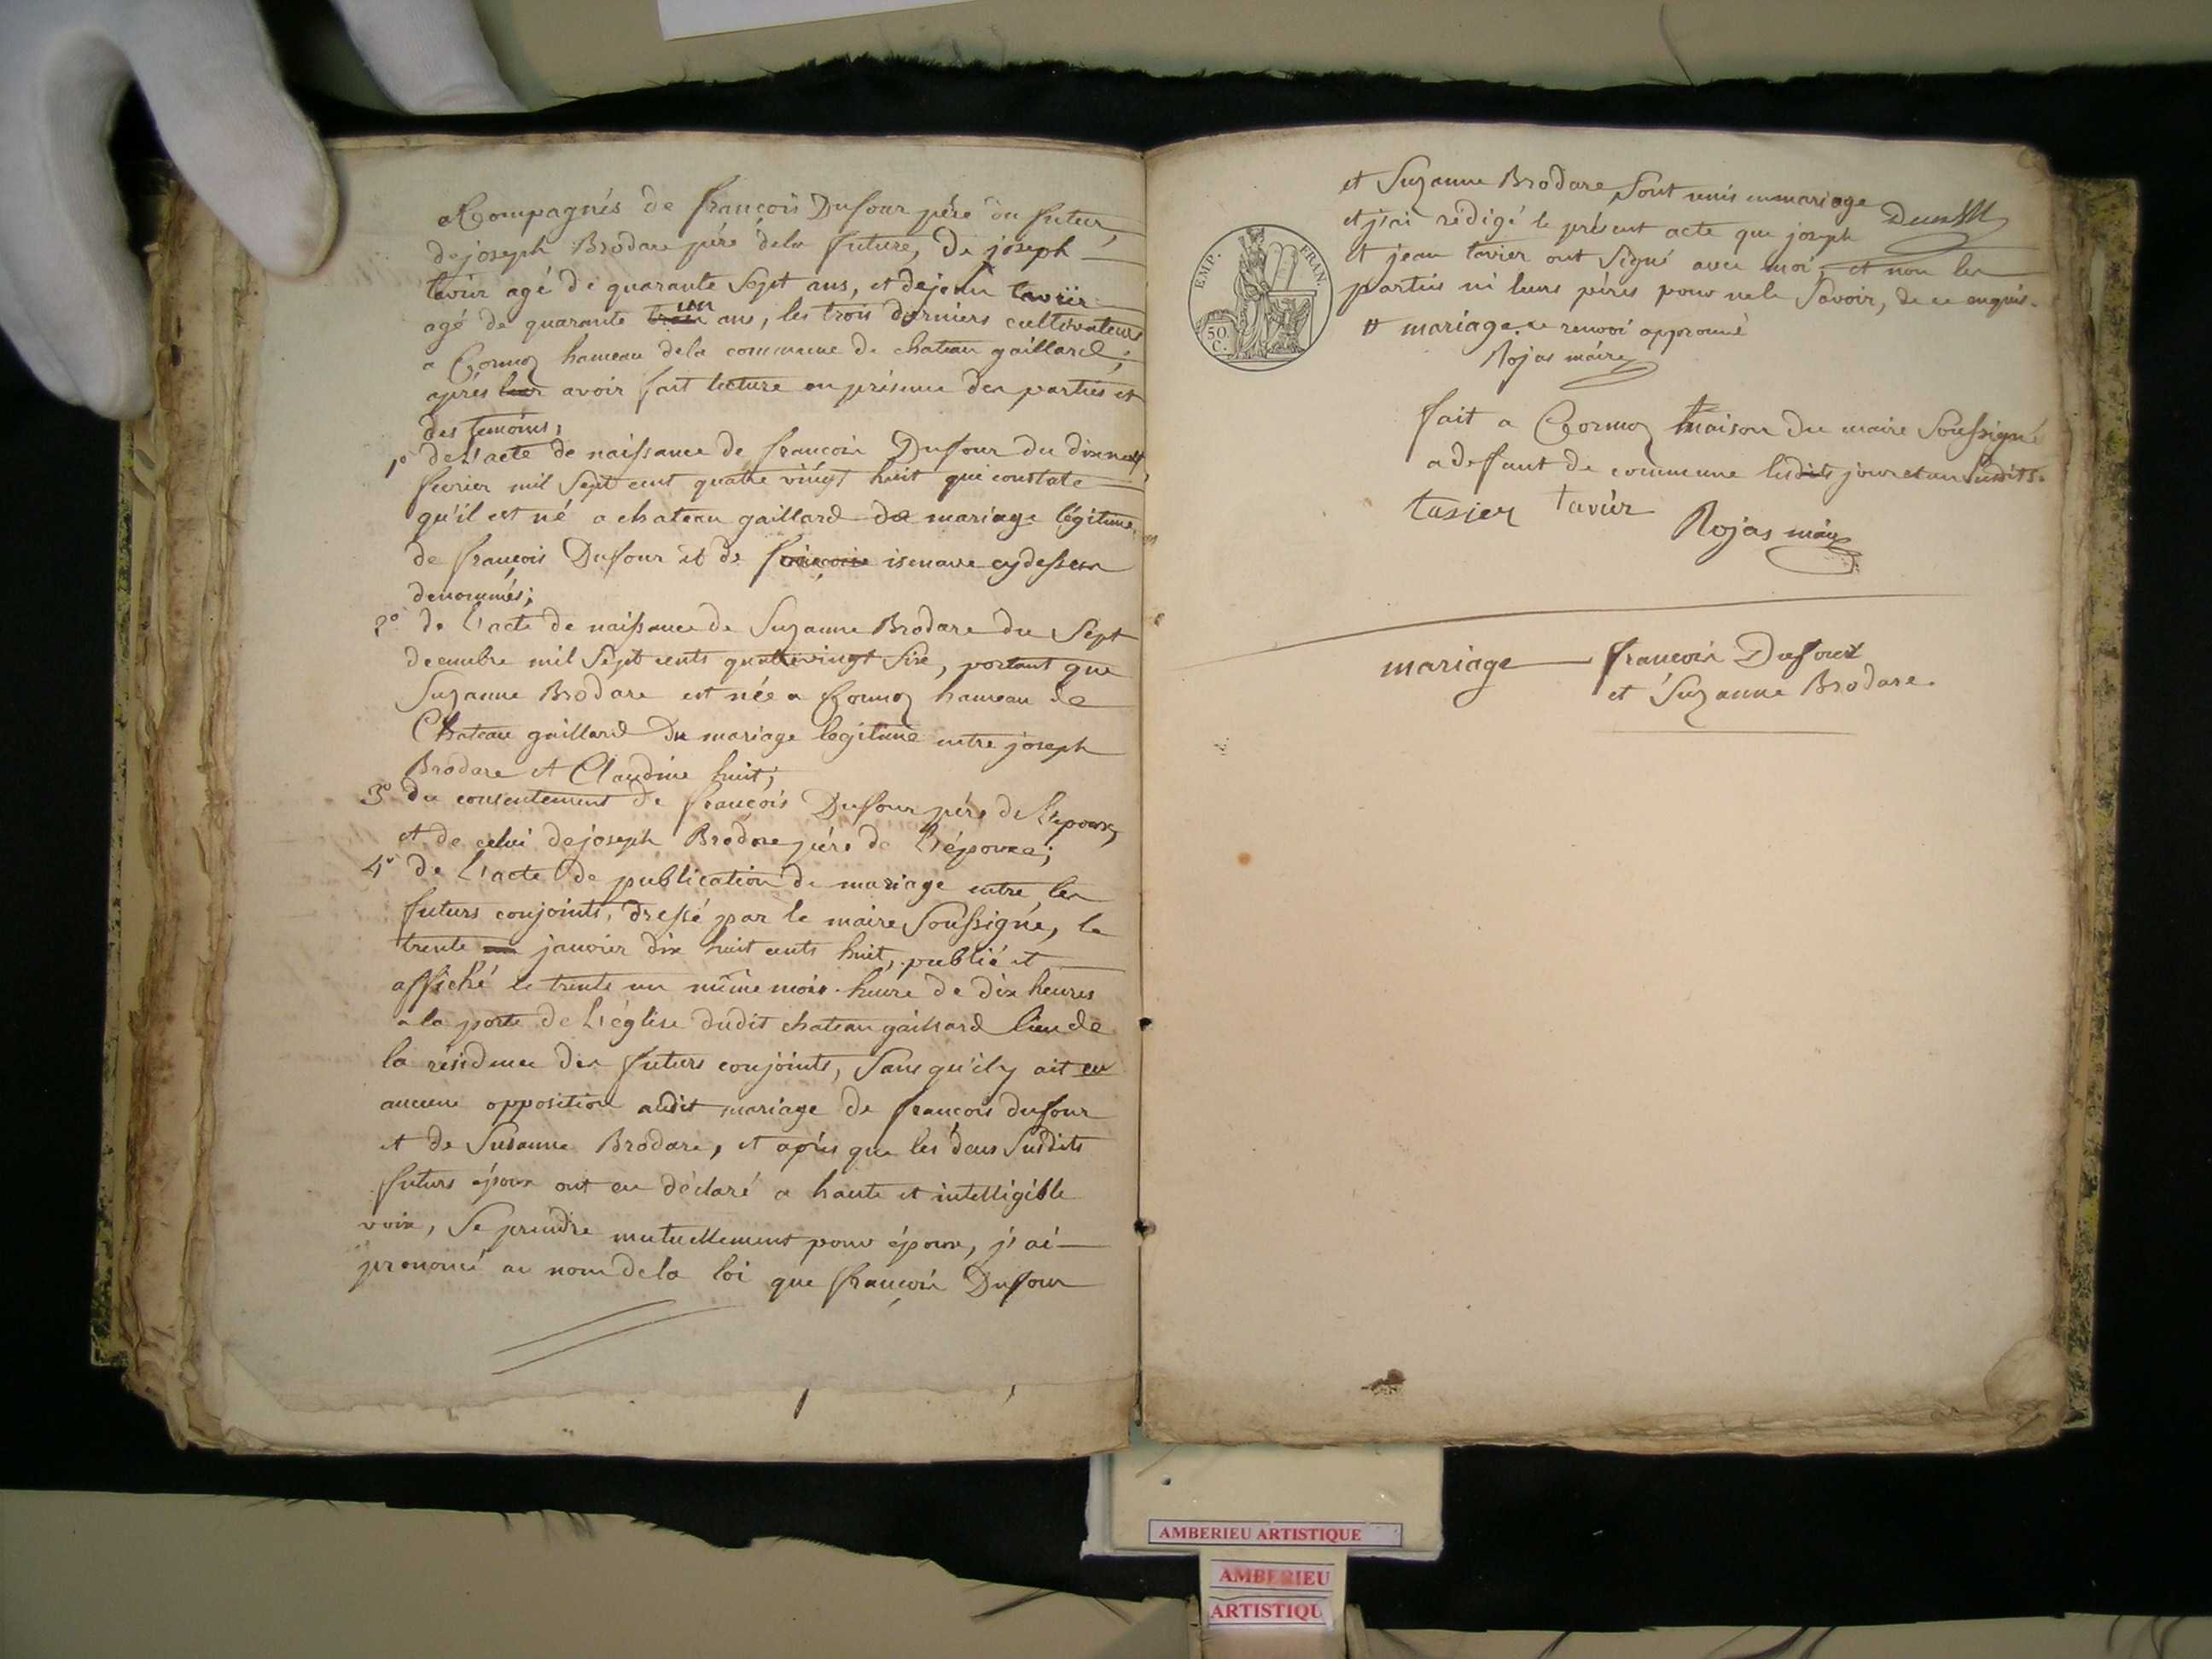 accompagnés de françois Dufour père du futur,
de joseph Brodare père dela future, de joseph
tavier agé de quarante Sept ans, et de jean tavier
agé de quarante un ans, les trois derniers cultivateurs
a Cormoz hameau dela commune de chateau gaillard,
après leur avoir fait lecture en présence des parties et
des temoins,
1° de l'acte de naissance de francois Dufour du dixneuf
fevrier mil Sept cent quatre vingt huit qui constate
qu'il est né a chateau gaillard du mariage légitime
de françois Dufour et de isenave cydessus
denommés;
2° de l'acte de naissance de Suzanne Brodare du Sept
decembre mil Sept cents quatrevingt Six, portant que
Suzanne Brodare est née a Cormoz hameau de
Chateau gaillard Du mariage legitime entre joseph
Brodare et Claudine huit;
3° du consentement de françois Dufour père de l'époux,
et de celui de joseph Brodare père de l'épouse;
4° de l'acte de publication de mariage entre les
futurs conjoints, dressé par le maire Soussigné, le
trente janvier dix huit cents huit, publié et
affiché le trente un même mois heure de dix heures
a la porte de l'église dudit chateau gaillard lieu de
la résidence des futurs conjoints, Sans qu'il y ait eu
aucune opposition audit mariage de françois dufour
et de Susanne Brodare, et après que les deux Susdits
futurs époux ont eu déclaré a haute et intelligible
voix, Se prendre mutuellement pour époux, j'ai
prononcé au nom dela loi que françois Dufour
et Suzanne Brodare Sont unis en mariage
et j'ai rédigé le présent acte que joseph
et jean tavier ont Signé avec moi, et non les
parties ni leurs pères pour ne le Savoir, de ce enquis.
EMP. FRAN.
50
C.
# mariage. ce renvoi approuvé
Rojas maire
fait a Cormoz maison du maire Soussigné
a defaut de commune lesdits jour et an Susdits.
tavier tavier
Rojas maire
mariage françois Dufour
et Suzanne Brodare.
AMBERIEU ARTISTIQUE
AMBERIEU
ARTISTIQU